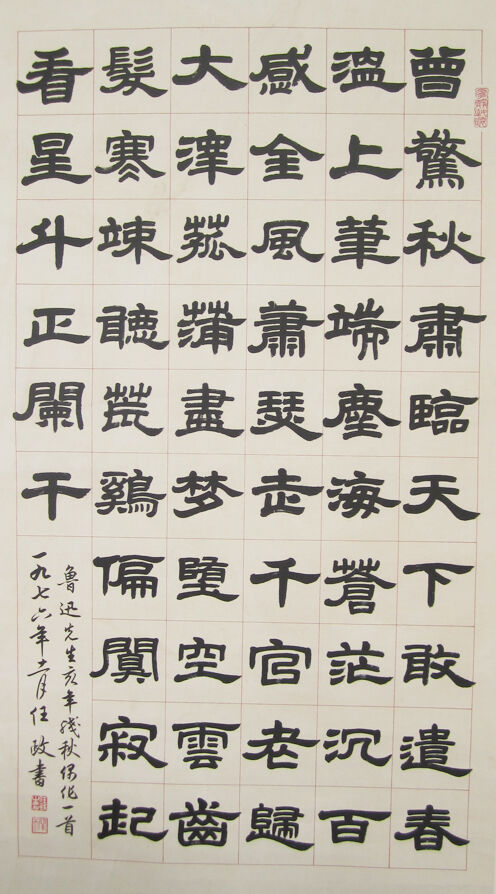 曾驚秋肅臨天下敢遣春
溫上筆端塵海蒼茫沉百
感金風蕭瑟走千官老歸
大澤菰蒲盡梦墮空雲齒
髮寒竦聽荒鷄偏闃寂起
看星斗正闌干
魯迅先生亥年殘秋偶作一首
一九七六年十一月任政書